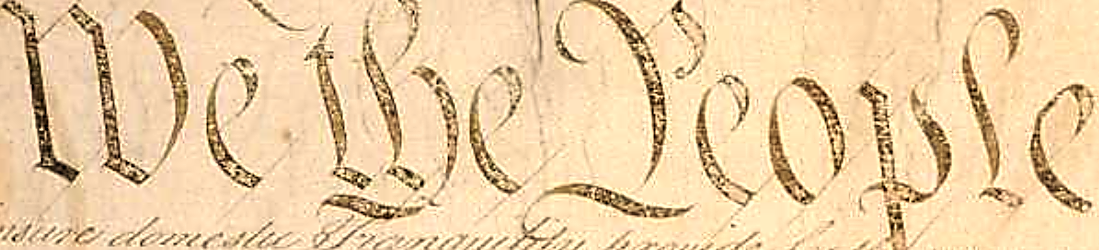 We the People
insure domestic Tranquility, provide